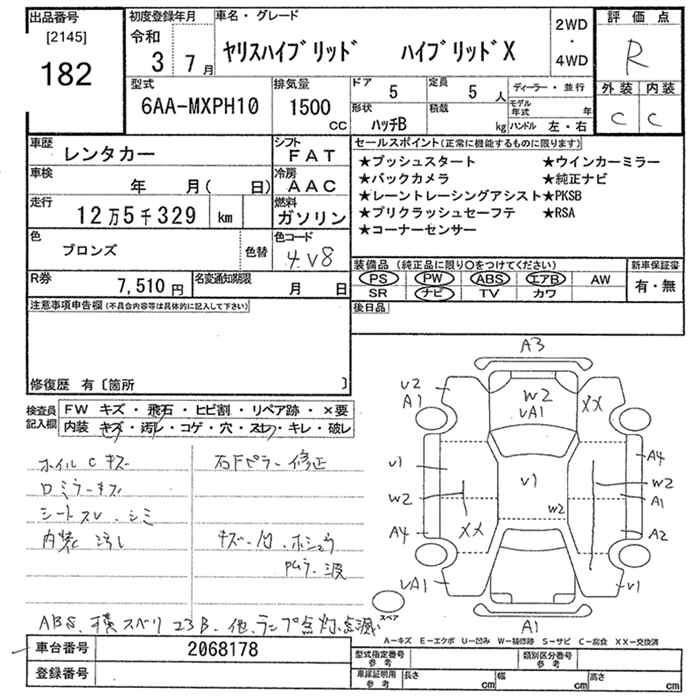 出品番号
[2145]
182
初度登録年月
令和
3 7月
車名・グレード
ヤリスハイブリッド ハイブリッドX
2WD
・
4WD
評価点
R
外装 内装
C C
型式
6AA-MXPH10
排気量
1500
CC
ドア
5
定員
5 人
ディーラー・並行
形状
ハッチB
積載
kg
モデル年式 年
ハンドル 左・右
車歴
レンタカー
シフト
FAT
車検
年 月( 日)
冷房
AAC
走行
12万5千329 km
燃料
ガソリン
色
ブロンズ
色替
色コード
4V8
R券
7,510円
名変通知期限
月 日
セールスポイント(正常に機能するものに限ります)
★プッシュスタート ★ウインカーミラー
★バックカメラ ★純正ナビ
★レーントレーシングアシスト★PKSB
★プリクラッシュセーフテ ★RSA
★コーナーセンサー
装備品(純正品に限り○をつけてください)
PS PW ABS エアB AW
SR ナビ TV カワ
新車保証書
有・無
後日品
注意事項申告欄(不具合内容等は具体的に記入して下さい)
修復歴 有〔箇所 〕
検査員
記入欄
FW キズ・飛石・ヒビ割・リペア跡・×要
内装 キズ・汚レ・コゲ・穴・スレ・キレ・破レ
ホイルCキズ
ロミラーキズ
シートスレ、シミ
内装汚レ
右Fピラー修正
キズ・凹、ホシュウ
PMラ、波
ABS、横スベリ
他、ランプ点灯、点滅
A3
V2
A1
W2
VA1
XX
V1
W2
A4
XX
VA1
V1
W2
A4
W2
A1
A2
V1
A1
スペア
A-キズ E-エクボ U-凹み W-補修跡 S-サビ C-腐食 XX-交換済
車台番号
2068178
登録番号
型式指定番号
参考
類別区分番号
参考
車庫証明用
参考
長さ cm
幅 cm
高さ cm